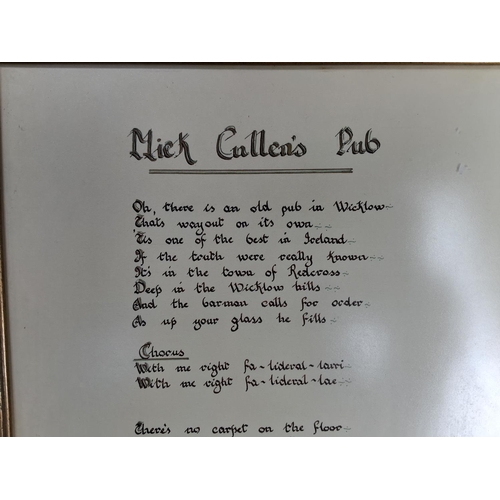 Mick Cullen's Pub
Oh, there is an old pub in Wicklow
Thats way out on its own
'Tis one of the best in Ireland
If the truth were really known
It's in the town of Redcross
Deep in the Wicklow hills
And the barman calls for order
As up your glass he fills
Chorus
With me right fa-lideral-larri
With me right fa-lideral-lae
There's no carpet on the floor